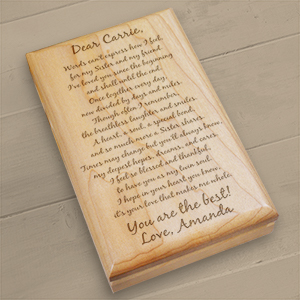 Dear Carrie,
Words can't express how I feel,
for my Sister and my friend.
I've loved you since the beginning
and shall until the end.
Once together every day,
now divided by days and miles.
Though often I remember,
the breathless laughter and smiles.
A heart, a soul, a special bend,
and so much more a Sister shares.
Times may change but you'll always know,
my deepest hopes, dreams, and cares.
I feel so blessed and thankful,
to have you as my twin soul.
I hope in your heart you know,
it's your love that makes me whole.
You are the best!
Love, Amanda